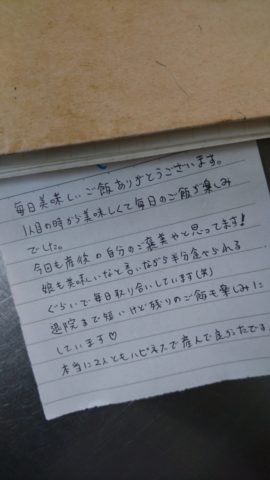 毎日美味しいご飯ありがとうございます。
1人目の時から美味しくて毎日のご飯が楽しみ
でした。
今日も産後の自分のご褒美やと思ってます!
娘も美味しいなと言いながら半分食べられる
ぐらいで毎日取り合いしています(笑)
退院まで短いけど残りのご飯も楽しみに
しています♡
本当に2人ともいピネスで産んで良かったです